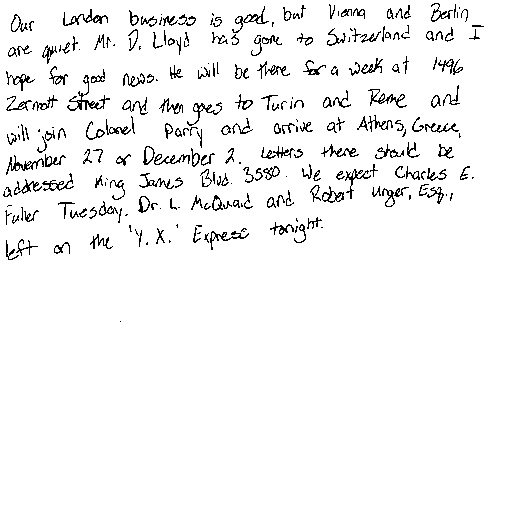 Our London business is good, but Vienna and Berlin
are quiet. Mr. D. Lloyd has gone to Switzerland and I
hope for good news. He will be there for a week at 1496
Zermott Street and then goes to Turin and Rome and
will join Colonel Parry and arrive at Athens, Greece,
November 27 or December 2. Letters there should be
addressed King James Blvd. 3580. We expect Charles E.
Fuller Tuesday. Dr. L. McQuaid and Robert Unger, Esq.,
left on the 'Y. X.' Express tonight.